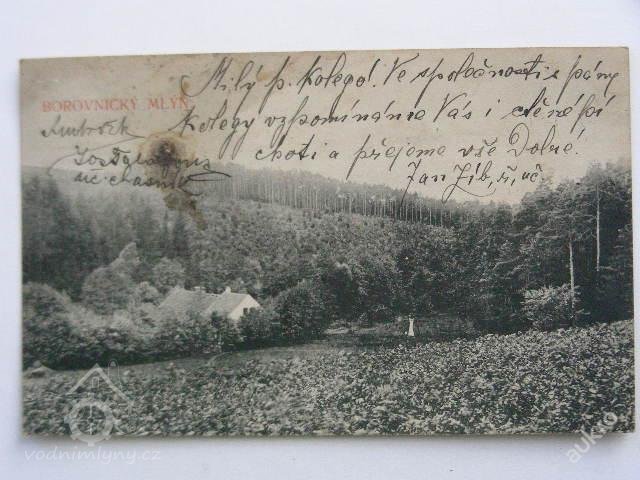 Milý p. Kolego! Ve společnosti s pány
BOROVNICKÝ MLÝN
Kolegy vzpomínáme Vás i ctěné pí
choti a přejeme vše Dobré!
Jan Jíb, ř. uč.
uč.
vodnimlyny.cz
aukro